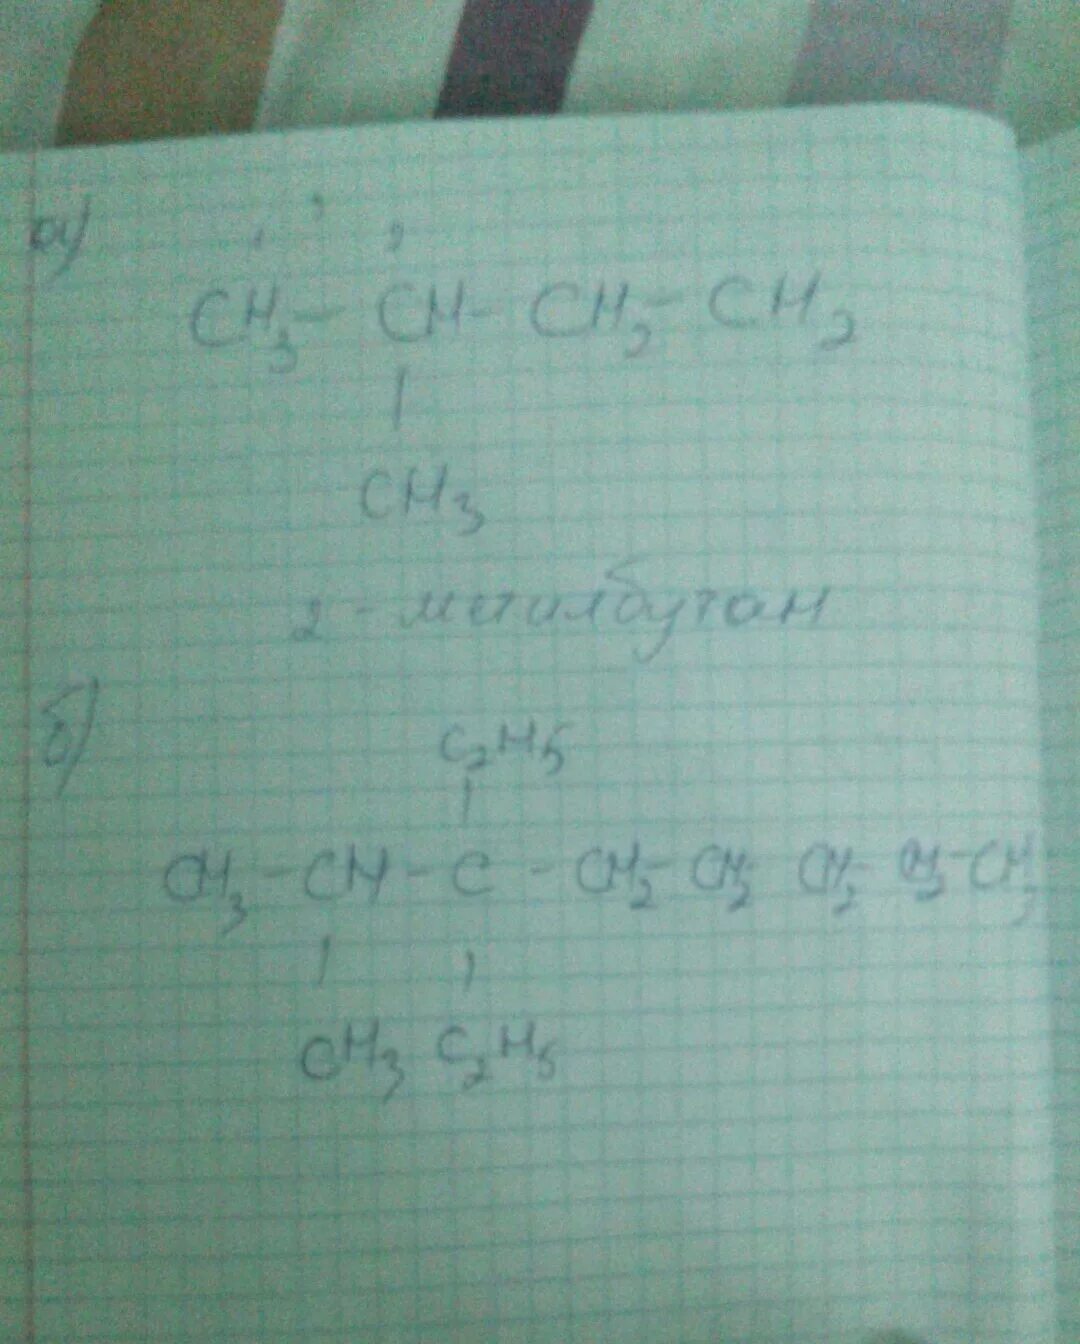 а)
1 2
CH3 - CH - CH2 - CH2
|
CH3
2 - метилбутан
б)
C2H5
|
CH3 - CH - C - CH2 - CH2 CH2 - CH2 - CH3
| |
CH3 C2H5